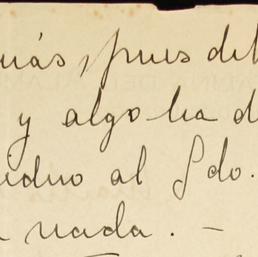 más, pues del
y algo ha d
iduo al Sdo.
nada. —